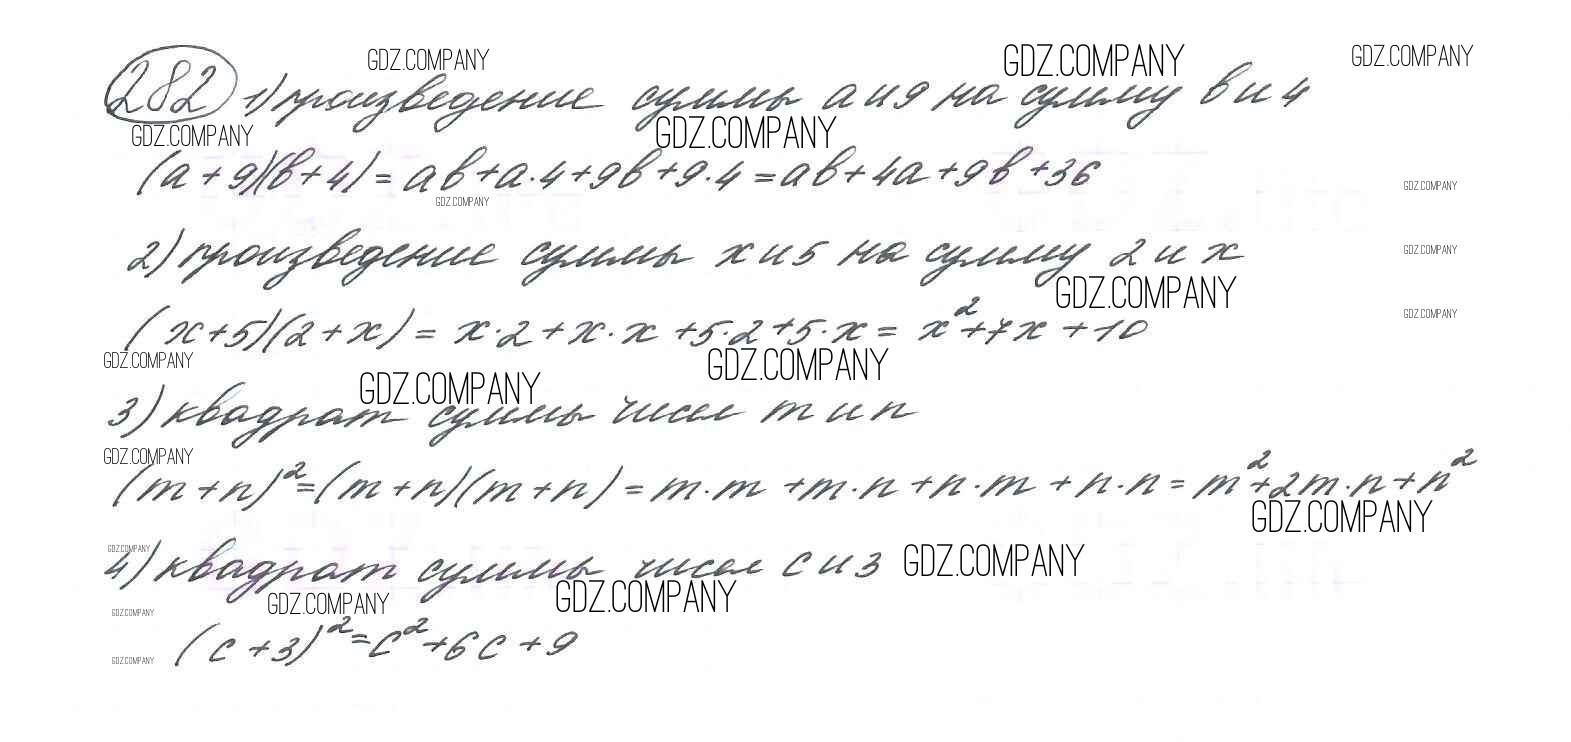 GDZ.COMPANY GDZ.COMPANY GDZ.COMPANY
282 1) произведение суммы a и 9 на сумму b и 4
GDZ.COMPANY GDZ.COMPANY
(a+9)(b+4)=ab+a·4+9b+9·4=ab+4a+9b+36
GDZ.COMPANY GDZ.COMPANY
2) произведение суммы x и 5 на сумму 2 и x
GDZ.COMPANY
GDZ.COMPANY
(x+5)(2+x)=x·2+x·x+5·2+5·x=x²+7x+10
GDZ.COMPANY
GDZ.COMPANY GDZ.COMPANY
GDZ.COMPANY
3) квадрат суммы чисел m и n
GDZ.COMPANY
(m+n)²=(m+n)(m+n)=m·m+m·n+n·m+n·n=m²+2m·n+n²
GDZ.COMPANY
GDZ.COMPANY
4) квадрат суммы чисел c и 3 GDZ.COMPANY
GDZ.COMPANY GDZ.COMPANY
GDZ.COMPANY
(c+3)²=c²+6c+9
GDZ.COMPANY